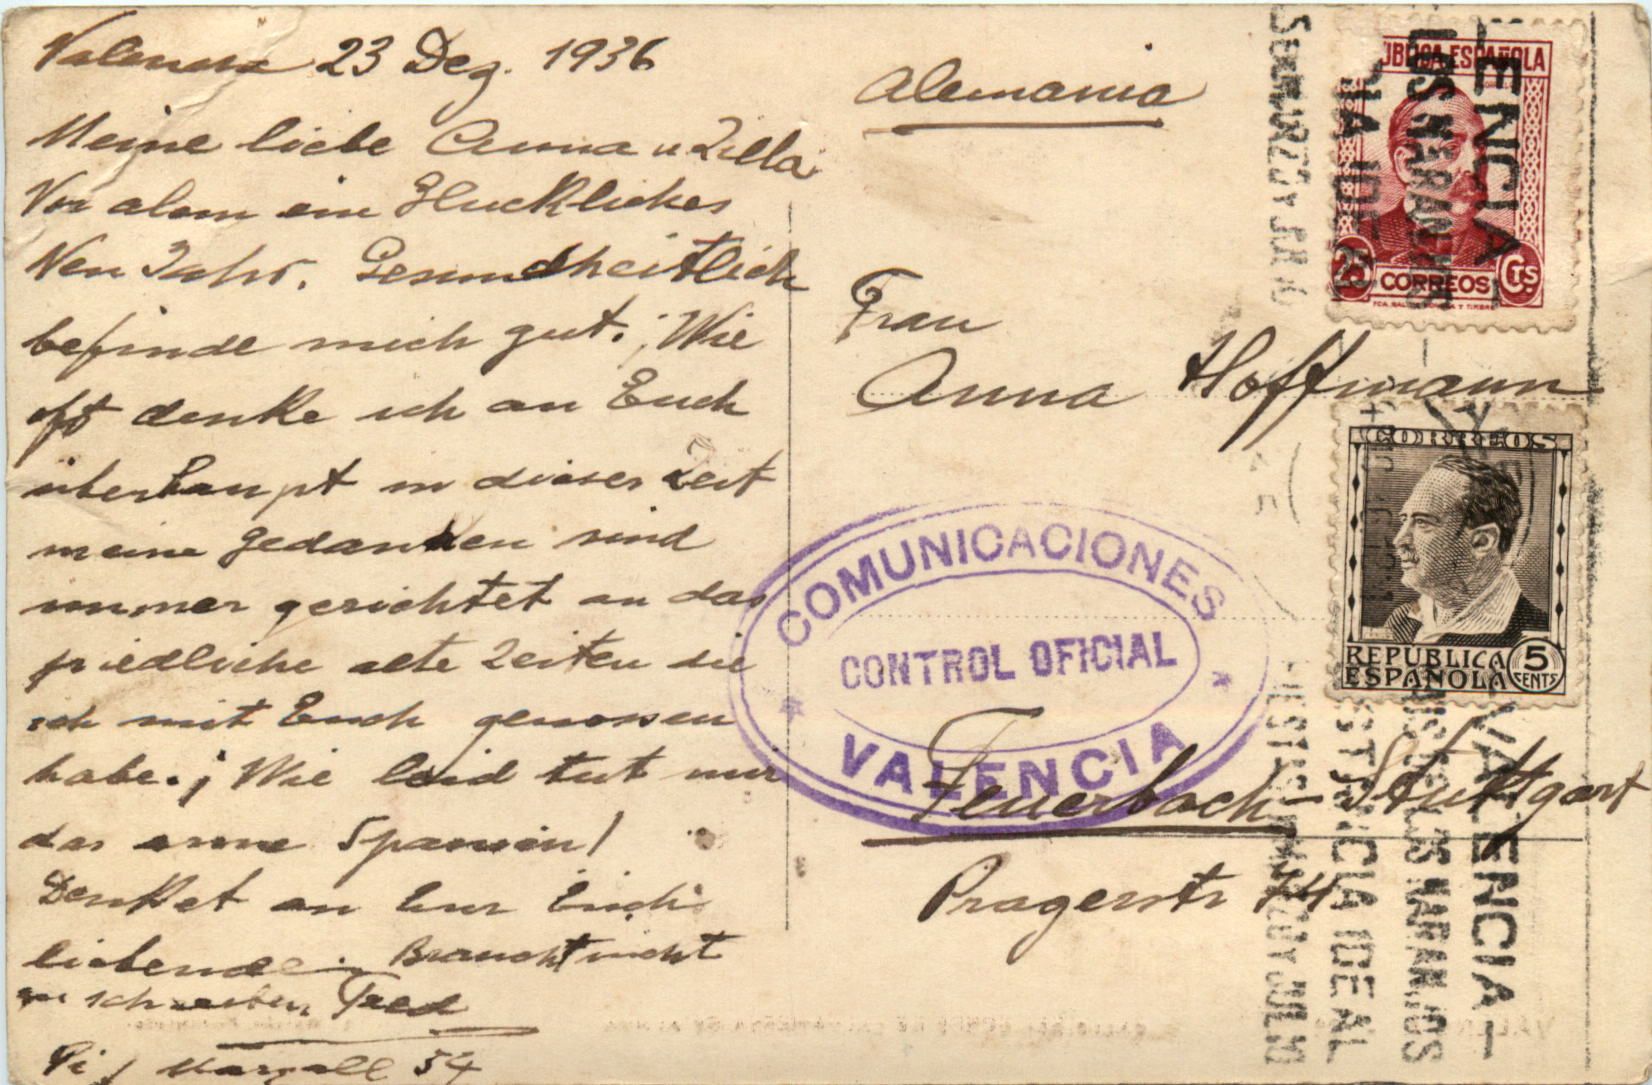 Valencia 23 Dez. 1936
Meine liebe Anna u Zilla
Vor alem ein Glückliches
Neu Jahr. Gesundheitlich
befinde mich gut. ¡Wie
oft denke ich an Euch
überhaupt in dieser Zeit
meine Gedanken sind
immer gerichtet an das
friedliche alte Zeiten die
ich mit Euch genossen
habe. ¡Wie leid tut mir
das arme Spanien!
Denket an Eur Euch
liebende Braucht nicht
zu schreiben Fred
Pi y Margall 54
Alemania
Frau
Anna Hoffmann
Feuerbach-Stuttgart
Pragerstr 74
COMUNICACIONES
CONTROL OFICIAL
VALENCIA
REPUBLICA ESPAÑOLA
25 CORREOS Cts
CORREOS
REPUBLICA
ESPAÑOLA
5 CENTS
VALENCIA
LOS NARANJOS
ESTANCIA IDEAL
FIESTAS MARZO Y JULIO